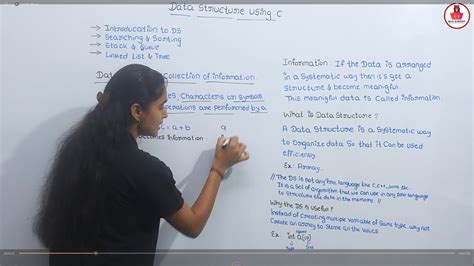 Data Structure using C
→ Introducation to DS
→ Searching & Sorting
→ Stack & Queue
→ Linked List & Tree
Collection of information
Characters or Symbols
operations are performed by a
C = a + b
Information
9
Information: If the Data is arranged
in a Systematic way then it's get a
Structure & become meaningful.
This meanigful data is Called information.
What is Data Structure?
A Data Structure is a Systematic way
to Organize data So that it Can be used
efficiency
Ex: Array
// The DS is not any Prog language like C, C++, java etc.
It is a Set of algorithm that we Can use in any prog language
to Structure the data in the memory. //
Why the DS is useful?
Instead of Creating multiple variable of Same type why not
Create an array to Store all the values.
Ex: int a[10]